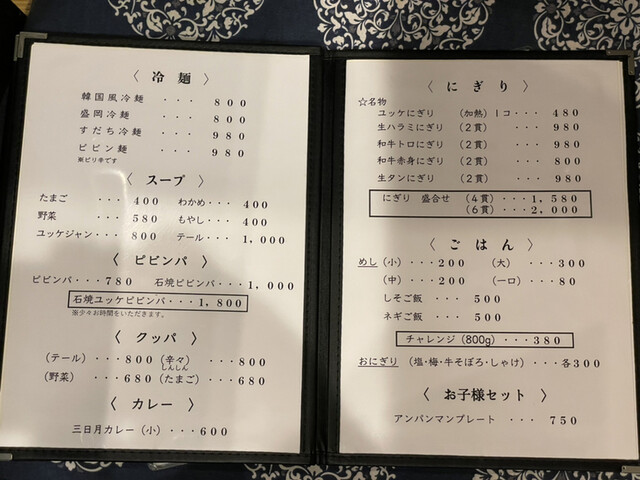 〈 冷 麺 〉
韓国風冷麺 ・・・ 800
盛岡冷麺 ・・・ 800
すだち冷麺 ・・・ 980
ビビン麺 ・・・ 980
※ピリ辛です
〈 スープ 〉
たまご ・・・ 400 わかめ ・・・ 400
野菜 ・・・ 580 もやし ・・・ 400
ユッケジャン ・・・ 800 テール ・・・ 1,000
〈 ビビンバ 〉
ビビンバ ・・・ 780 石焼ビビンバ ・・・ 1,000
石焼ユッケビビンバ ・・・ 1,800
※少々お時間をいただきます。
〈 クッパ 〉
(テール) ・・・ 800 (辛々) ・・・ 800
しんしん
(野菜) ・・・ 680 (たまご) ・・・ 680
〈 カレー 〉
三日月カレー (小) ・・・ 600
〈 にぎり 〉
☆名物
ユッケにぎり (加熱) 1コ ・・・ 480
生ハラミにぎり (2貫) ・・・ 980
和牛トロにぎり (2貫) ・・・ 980
和牛赤身にぎり (2貫) ・・・ 800
生タンにぎり (2貫) ・・・ 980
にぎり 盛合せ (4貫) ・・・ 1,580
(6貫) ・・・ 2,000
〈 ごはん 〉
めし (小) ・・・ 200 (大) ・・・ 300
(中) ・・・ 200 (一口) ・・・ 80
しそご飯 ・・・ 500
ネギご飯 ・・・ 500
チャレンジ (800g) ・・・ 380
おにぎり (塩・梅・牛そぼろ・しゃけ) ・・・ 各300
〈 お子様セット 〉
アンパンマンプレート ・・・ 750